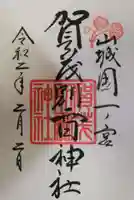 山城国一ノ宮
賀茂別雷神社
令和二年二月二日